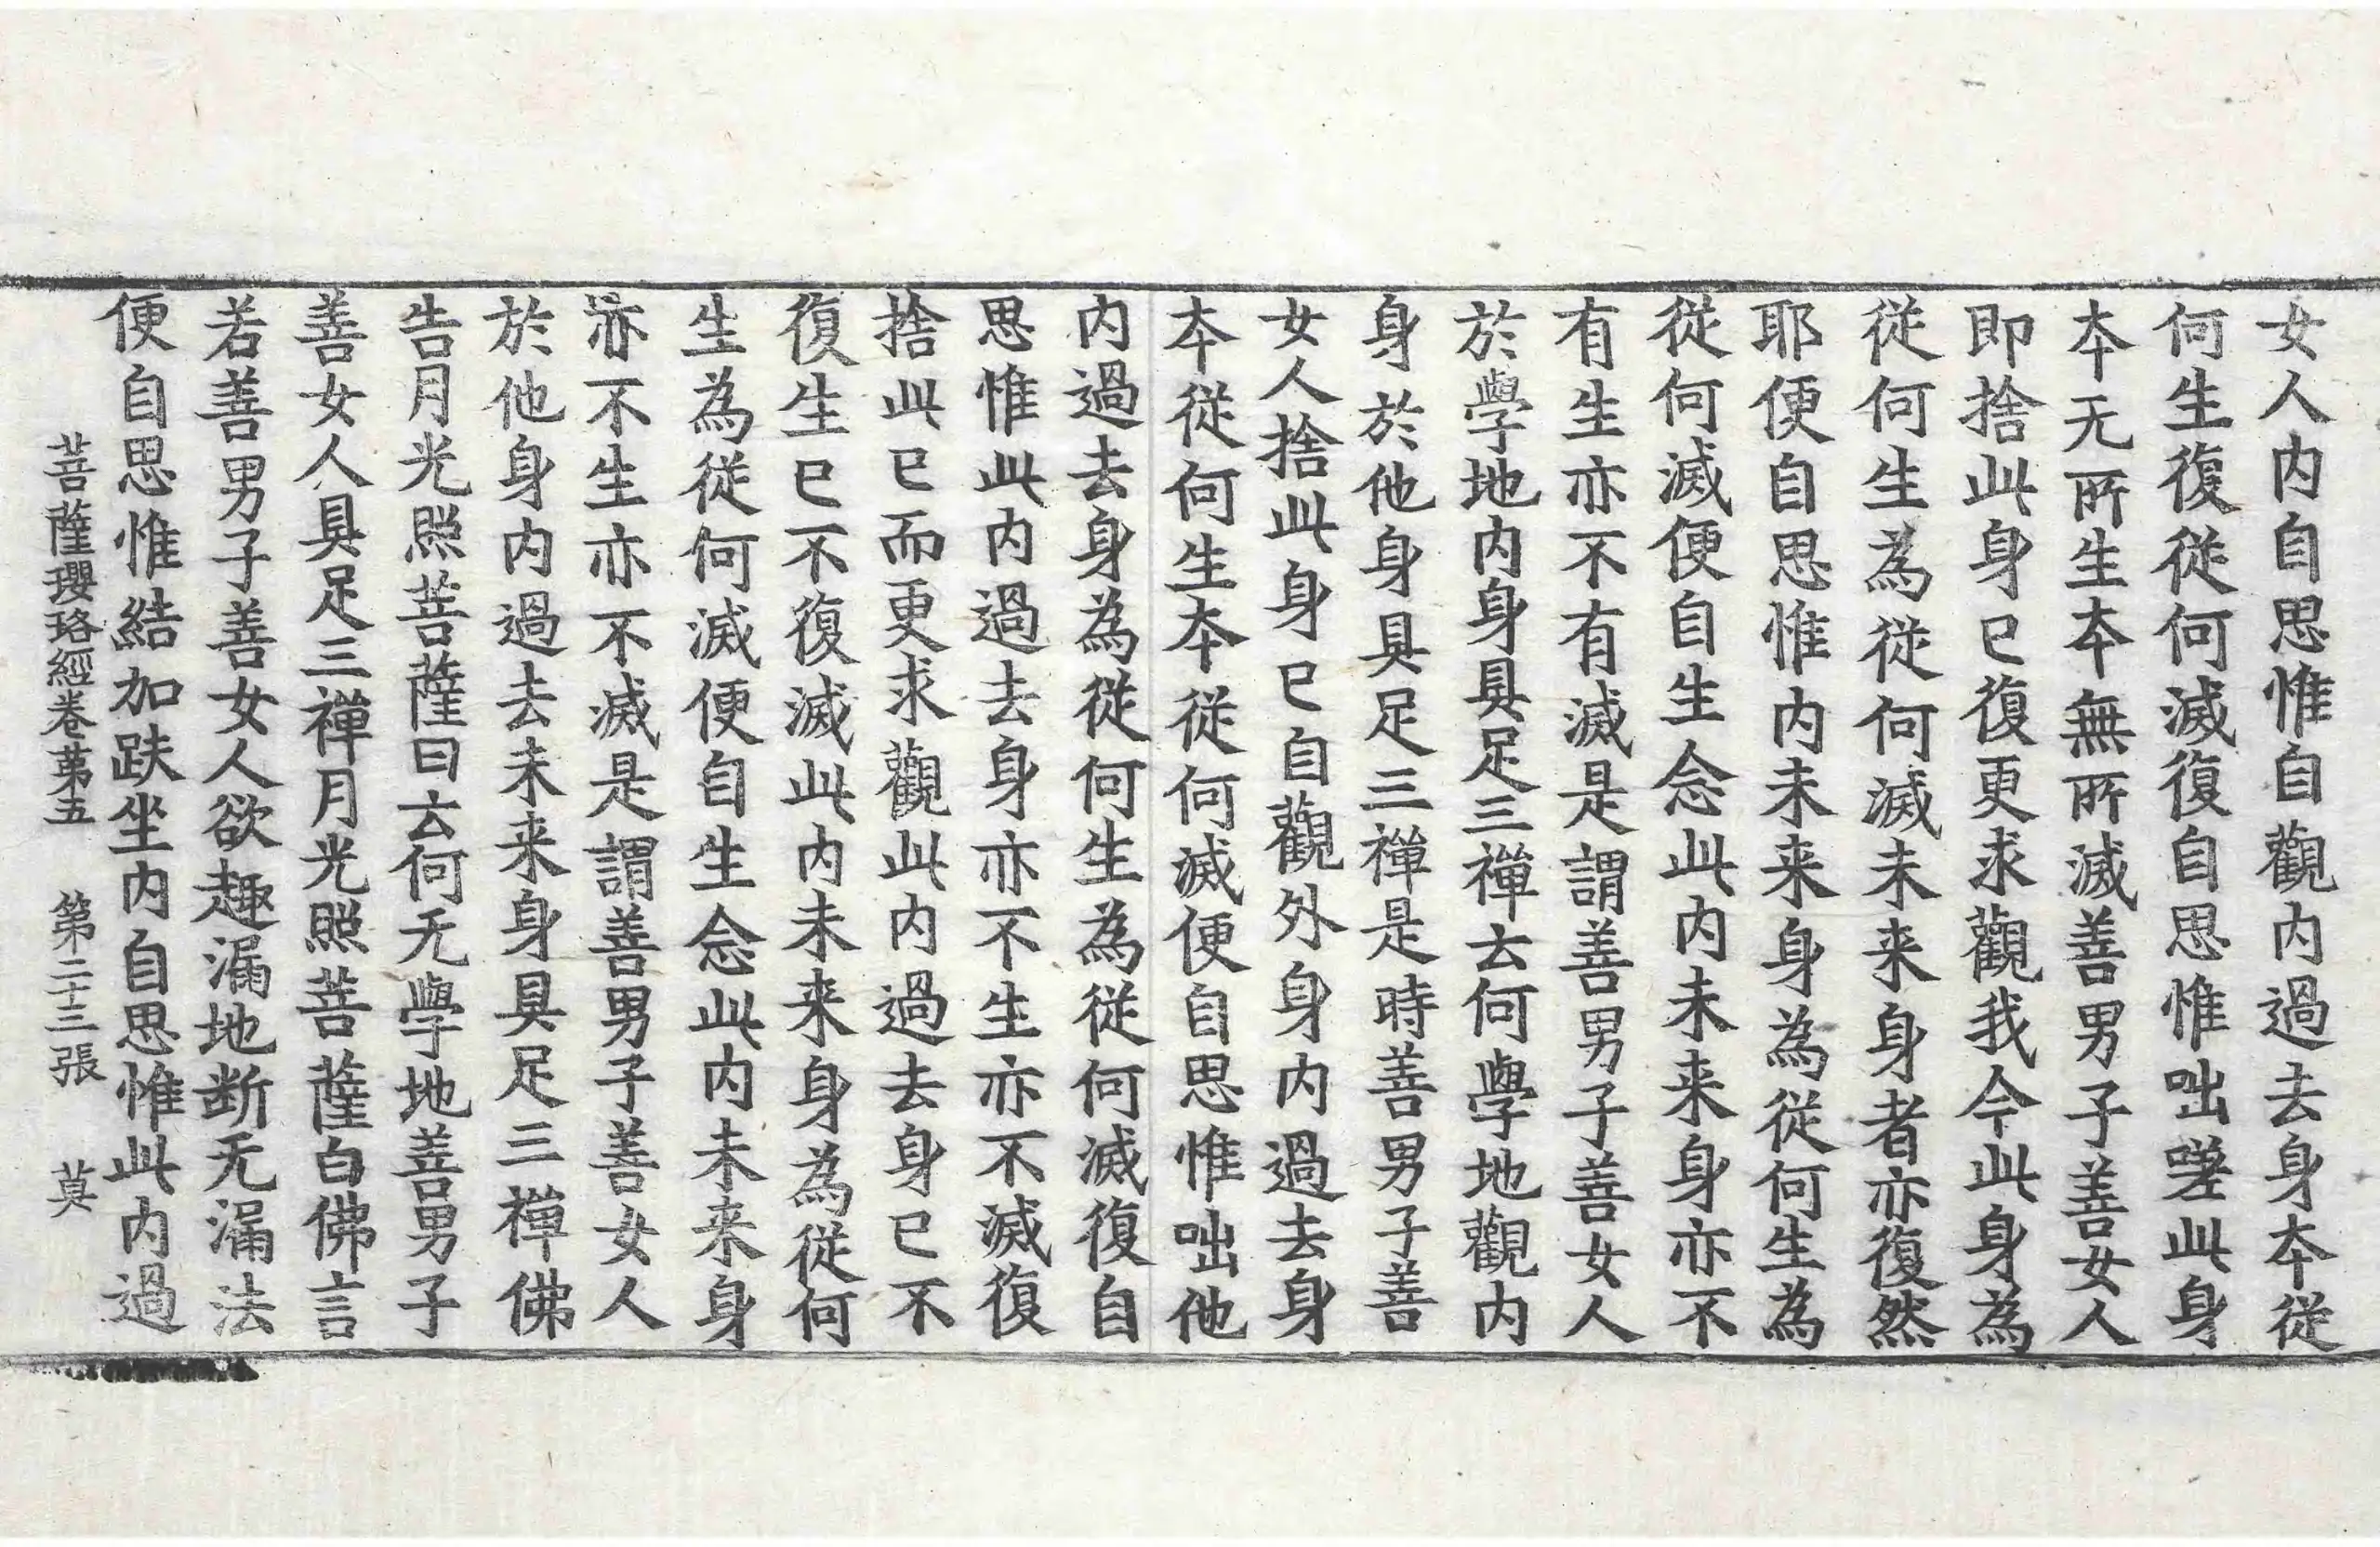 女人内自思惟自觀内過去身本從
何生復從何滅復自思惟咄嗟此身
本无所生本無所滅善男子善女人
即捨此身已復更求觀我今此身為
從何生為從何滅未来身者亦復然
耶便自思惟内未来身為從何生為
從何滅便自生念此内未来身亦不
有生亦不有滅是謂善男子善女人
於學地内身具足三禪云何學地觀内
身於他身具足三禪是時善男子善
女人捨此身已自觀外身内過去身
本從何生本從何滅便自思惟咄他
内過去身為從何生為從何滅復自
思惟此内過去身亦不生亦不滅復
捨此已而更求觀此内過去身已不
復生已不復滅此内未来身為從何
生為從何滅便自生念此内未来身
亦不生亦不滅是謂善男子善女人
於他身内過去未来身具足三禪佛
告月光照菩薩曰云何无學地善男子
善女人具足三禪月光照菩薩白佛言
若善男子善女人欲趣漏地断无漏法
便自思惟結加趺坐内自思惟此内過
菩薩瓔珞經卷苐五 第二十三張 莫